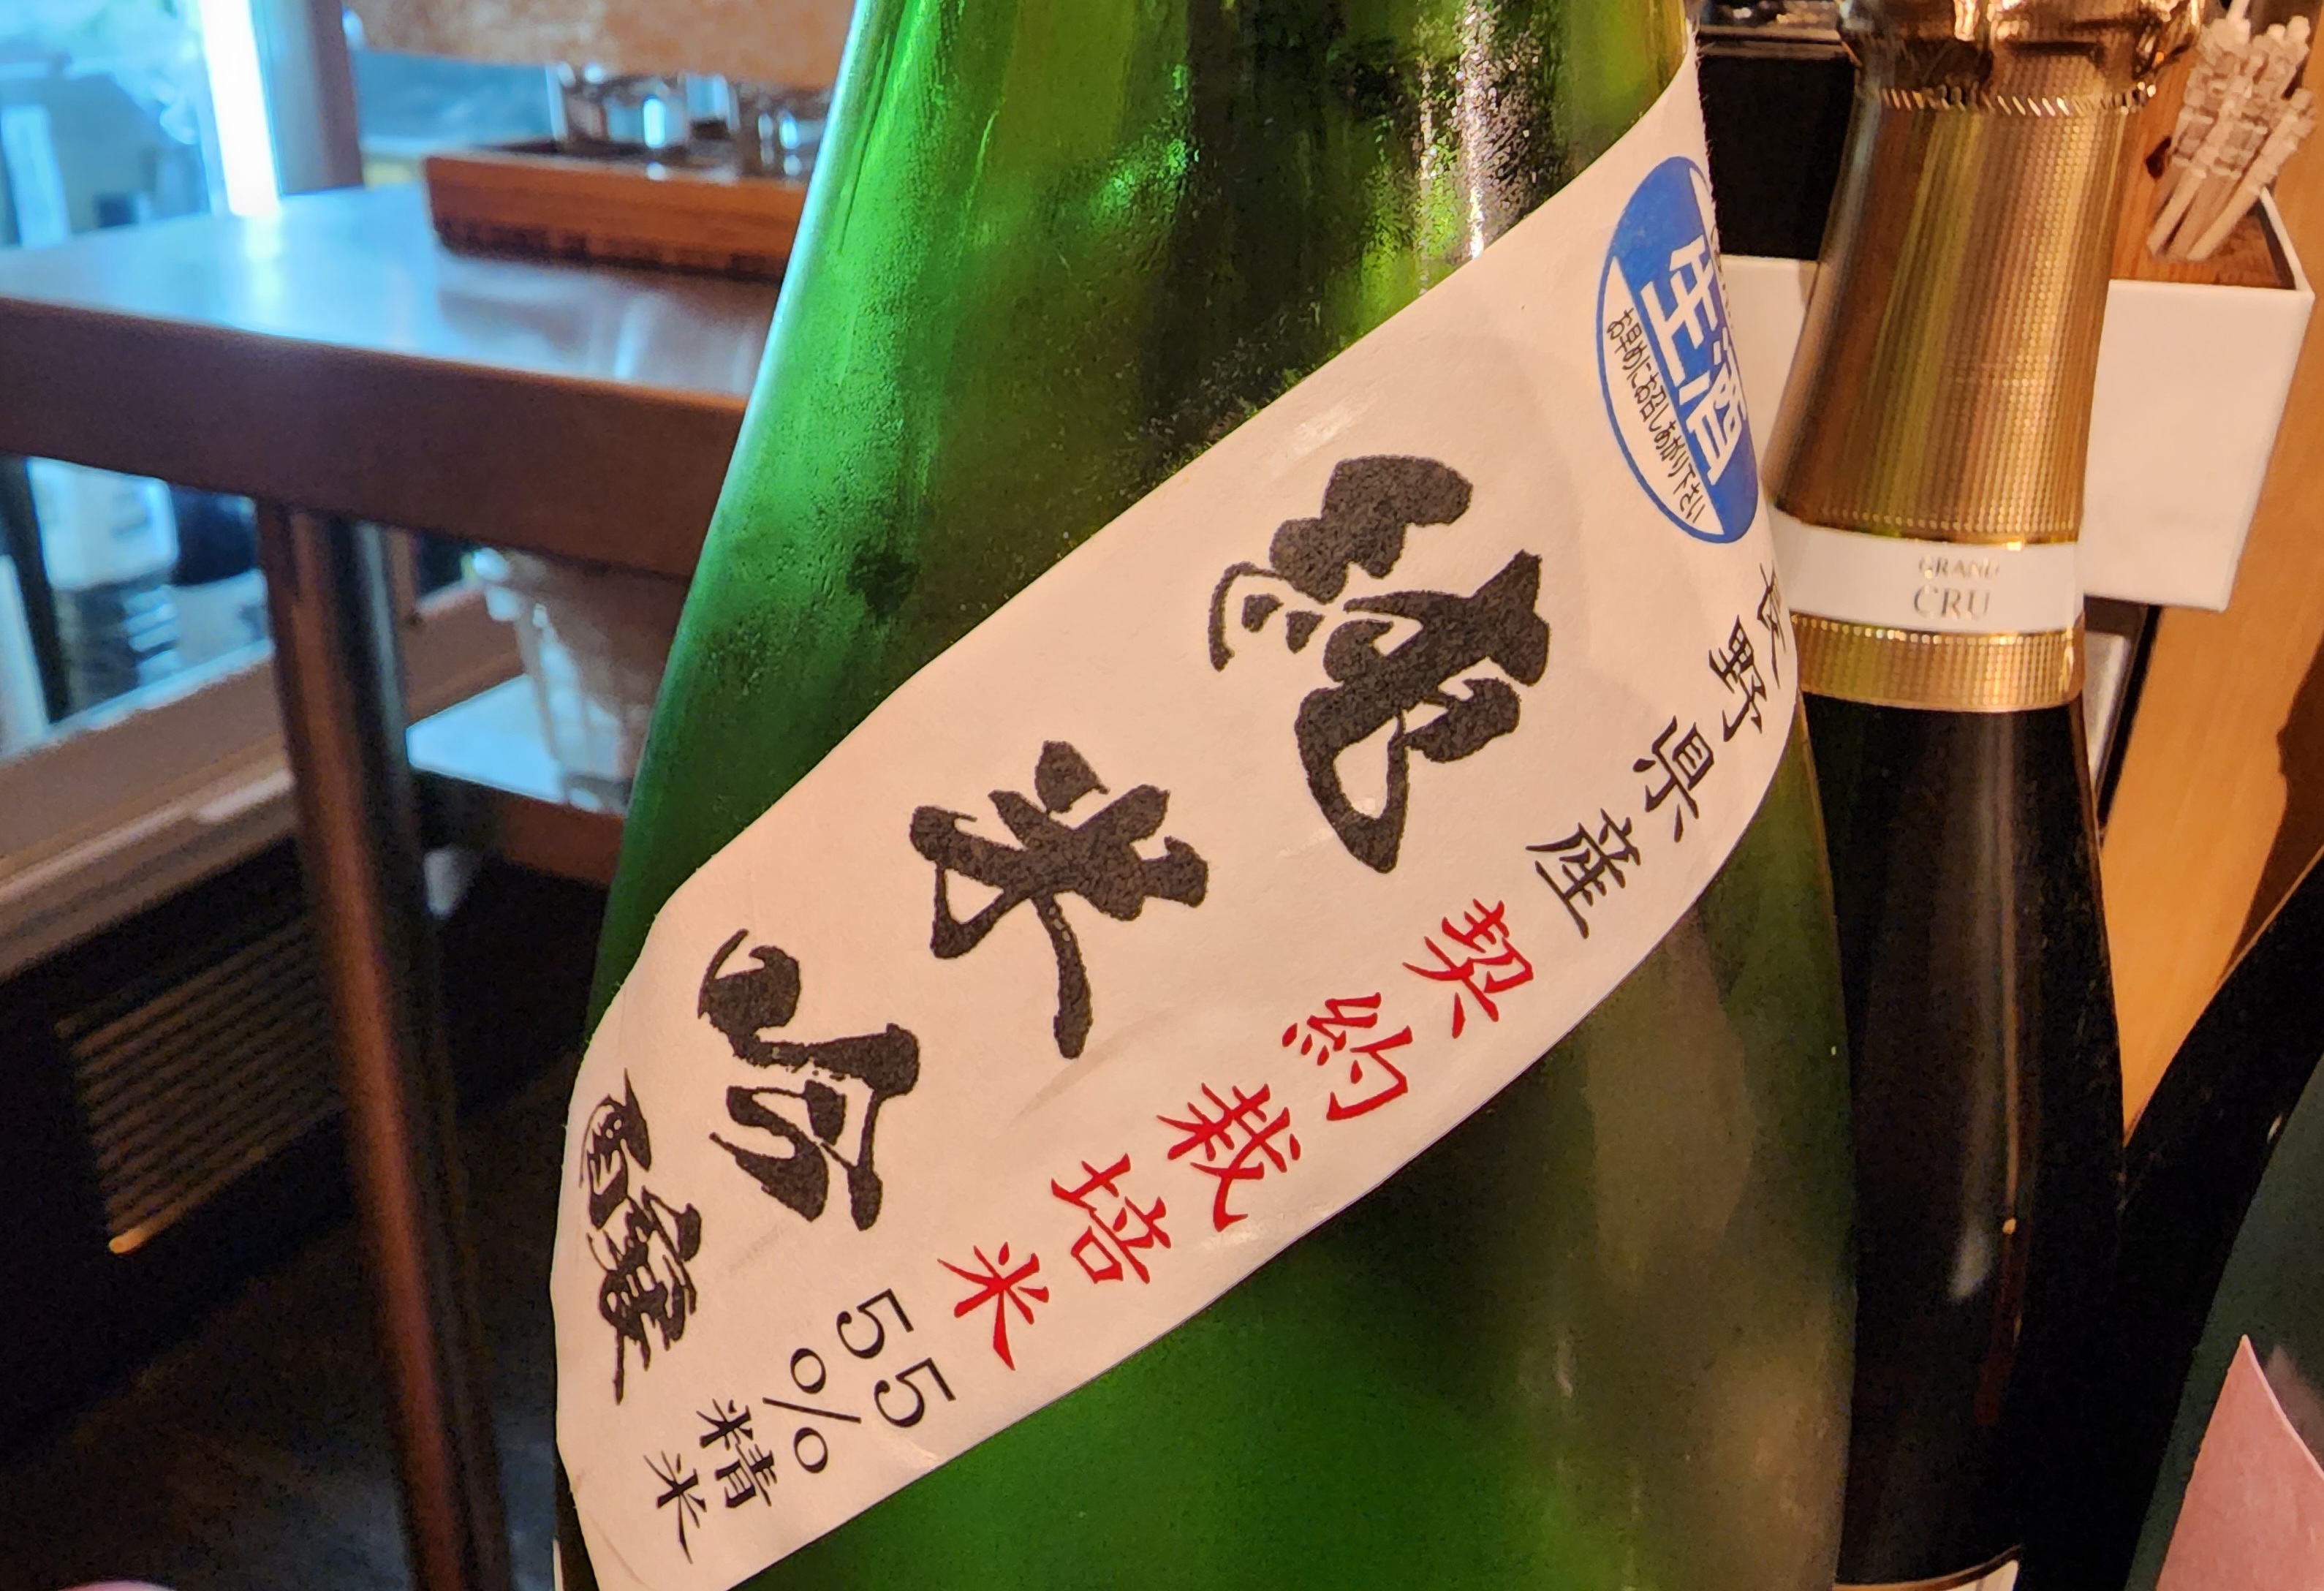 生酒
お早めにお召しあがり下さい
純米吟醸
長野県産契約栽培米
55%精米
GRAND
CRU